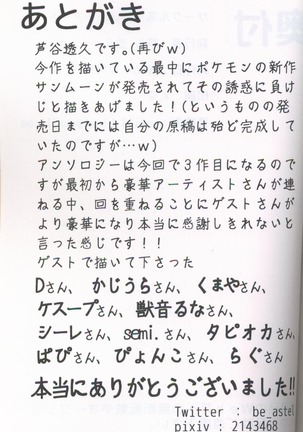 あとがき
芦谷透久です。(再びw)
今作を描いている最中にポケモンの新作
サンムーンが発売されてその誘惑に負け
じと描きあげました！(というものの発
売日までには自分の原稿は殆ど完成して
いたのですが…w)
アンソロジーは今回で3作目になるので
すが最初から豪華アーティストさんが連
ねる中、回を重ねるごとにゲストさんが
より豪華になり本当に感謝しきれないと
言った感じです！！
ゲストで描いて下さった
Dさん、かじうらさん、くまやさん、
ケスープさん、獣音るなさん、
シーレさん、semi.さん、タピオカさん、
ぱぴさん、ぴょんこさん、らぐさん
本当にありがとうございました!!
Twitter : be_astel
pixiv : 2143468